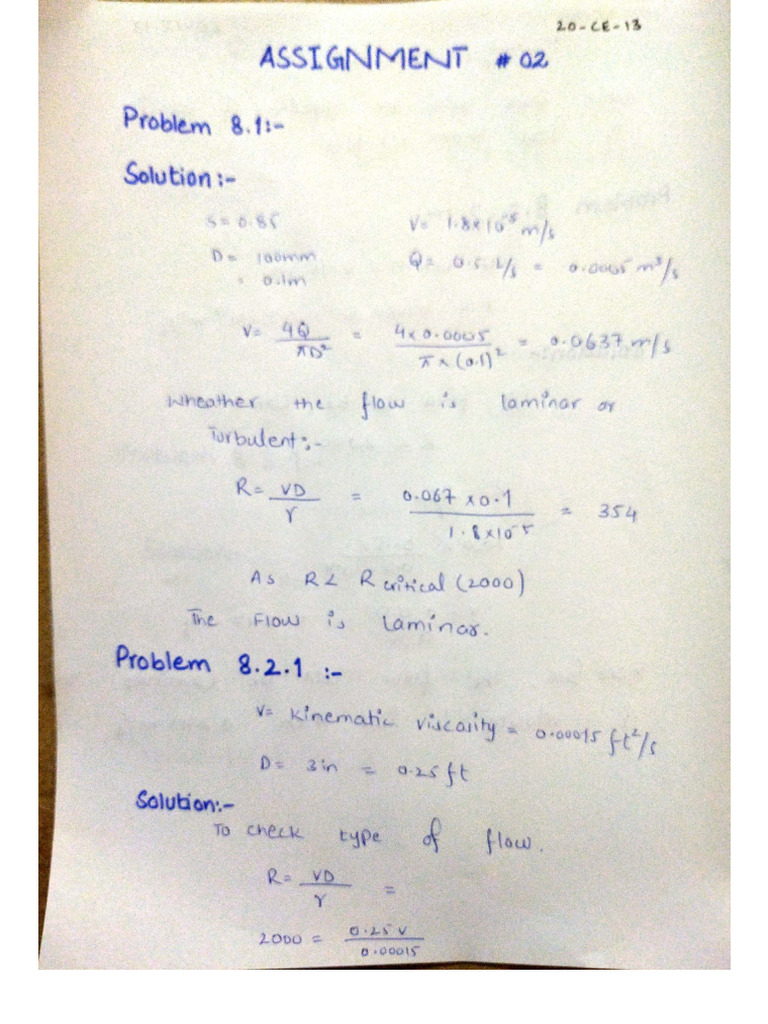 20-CE-13
ASSIGNMENT # 02
Problem 8.1:-
Solution:-
S= 0.85 V= 1.8x10^-5 m/s
D= 100mm Q= 0.5 L/s = 0.0005 m³/s
= 0.1m
V= 4Q/πD² = 4x0.0005/π x (0.1)² = 0.0637 m/s
Wheather the flow is laminar or
Turbulent:-
R= VD/γ = 0.067 x 0.1/1.8x10^-5 = 354
As R< R critical (2000)
The Flow is Laminar.
Problem 8.2.1 :-
V= Kinematic viscosity = 0.00015 ft²/s
D= 3in = 0.25ft
Solution:-
To check type of flow.
R= VD/γ =
2000 = 0.25 V/0.00015